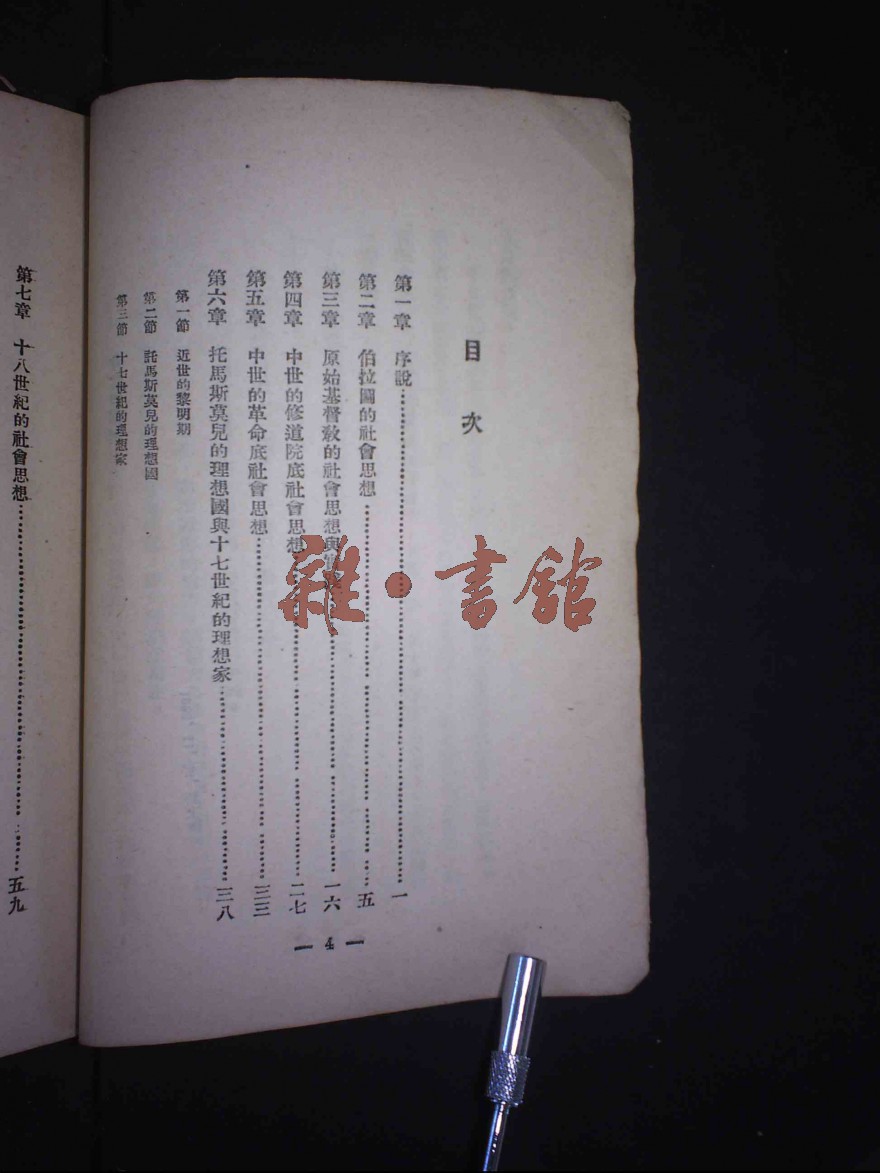 目次
第一章 序說 一
第二章 伯拉圖的社會思想 五
第三章 原始基督敎的社會思想與 一六
第四章 中世的修道院底社會思想 二七
第五章 中世的革命底社會思想 三三
第六章 托馬斯莫兒的理想國與十七世紀的理想家 三八
第一節 近世的黎明期
第二節 託馬斯莫兒的理想國
第三節 十七世紀的理想家
— 4 —
第七章 十八世紀的社會思想 五九
雜·書館